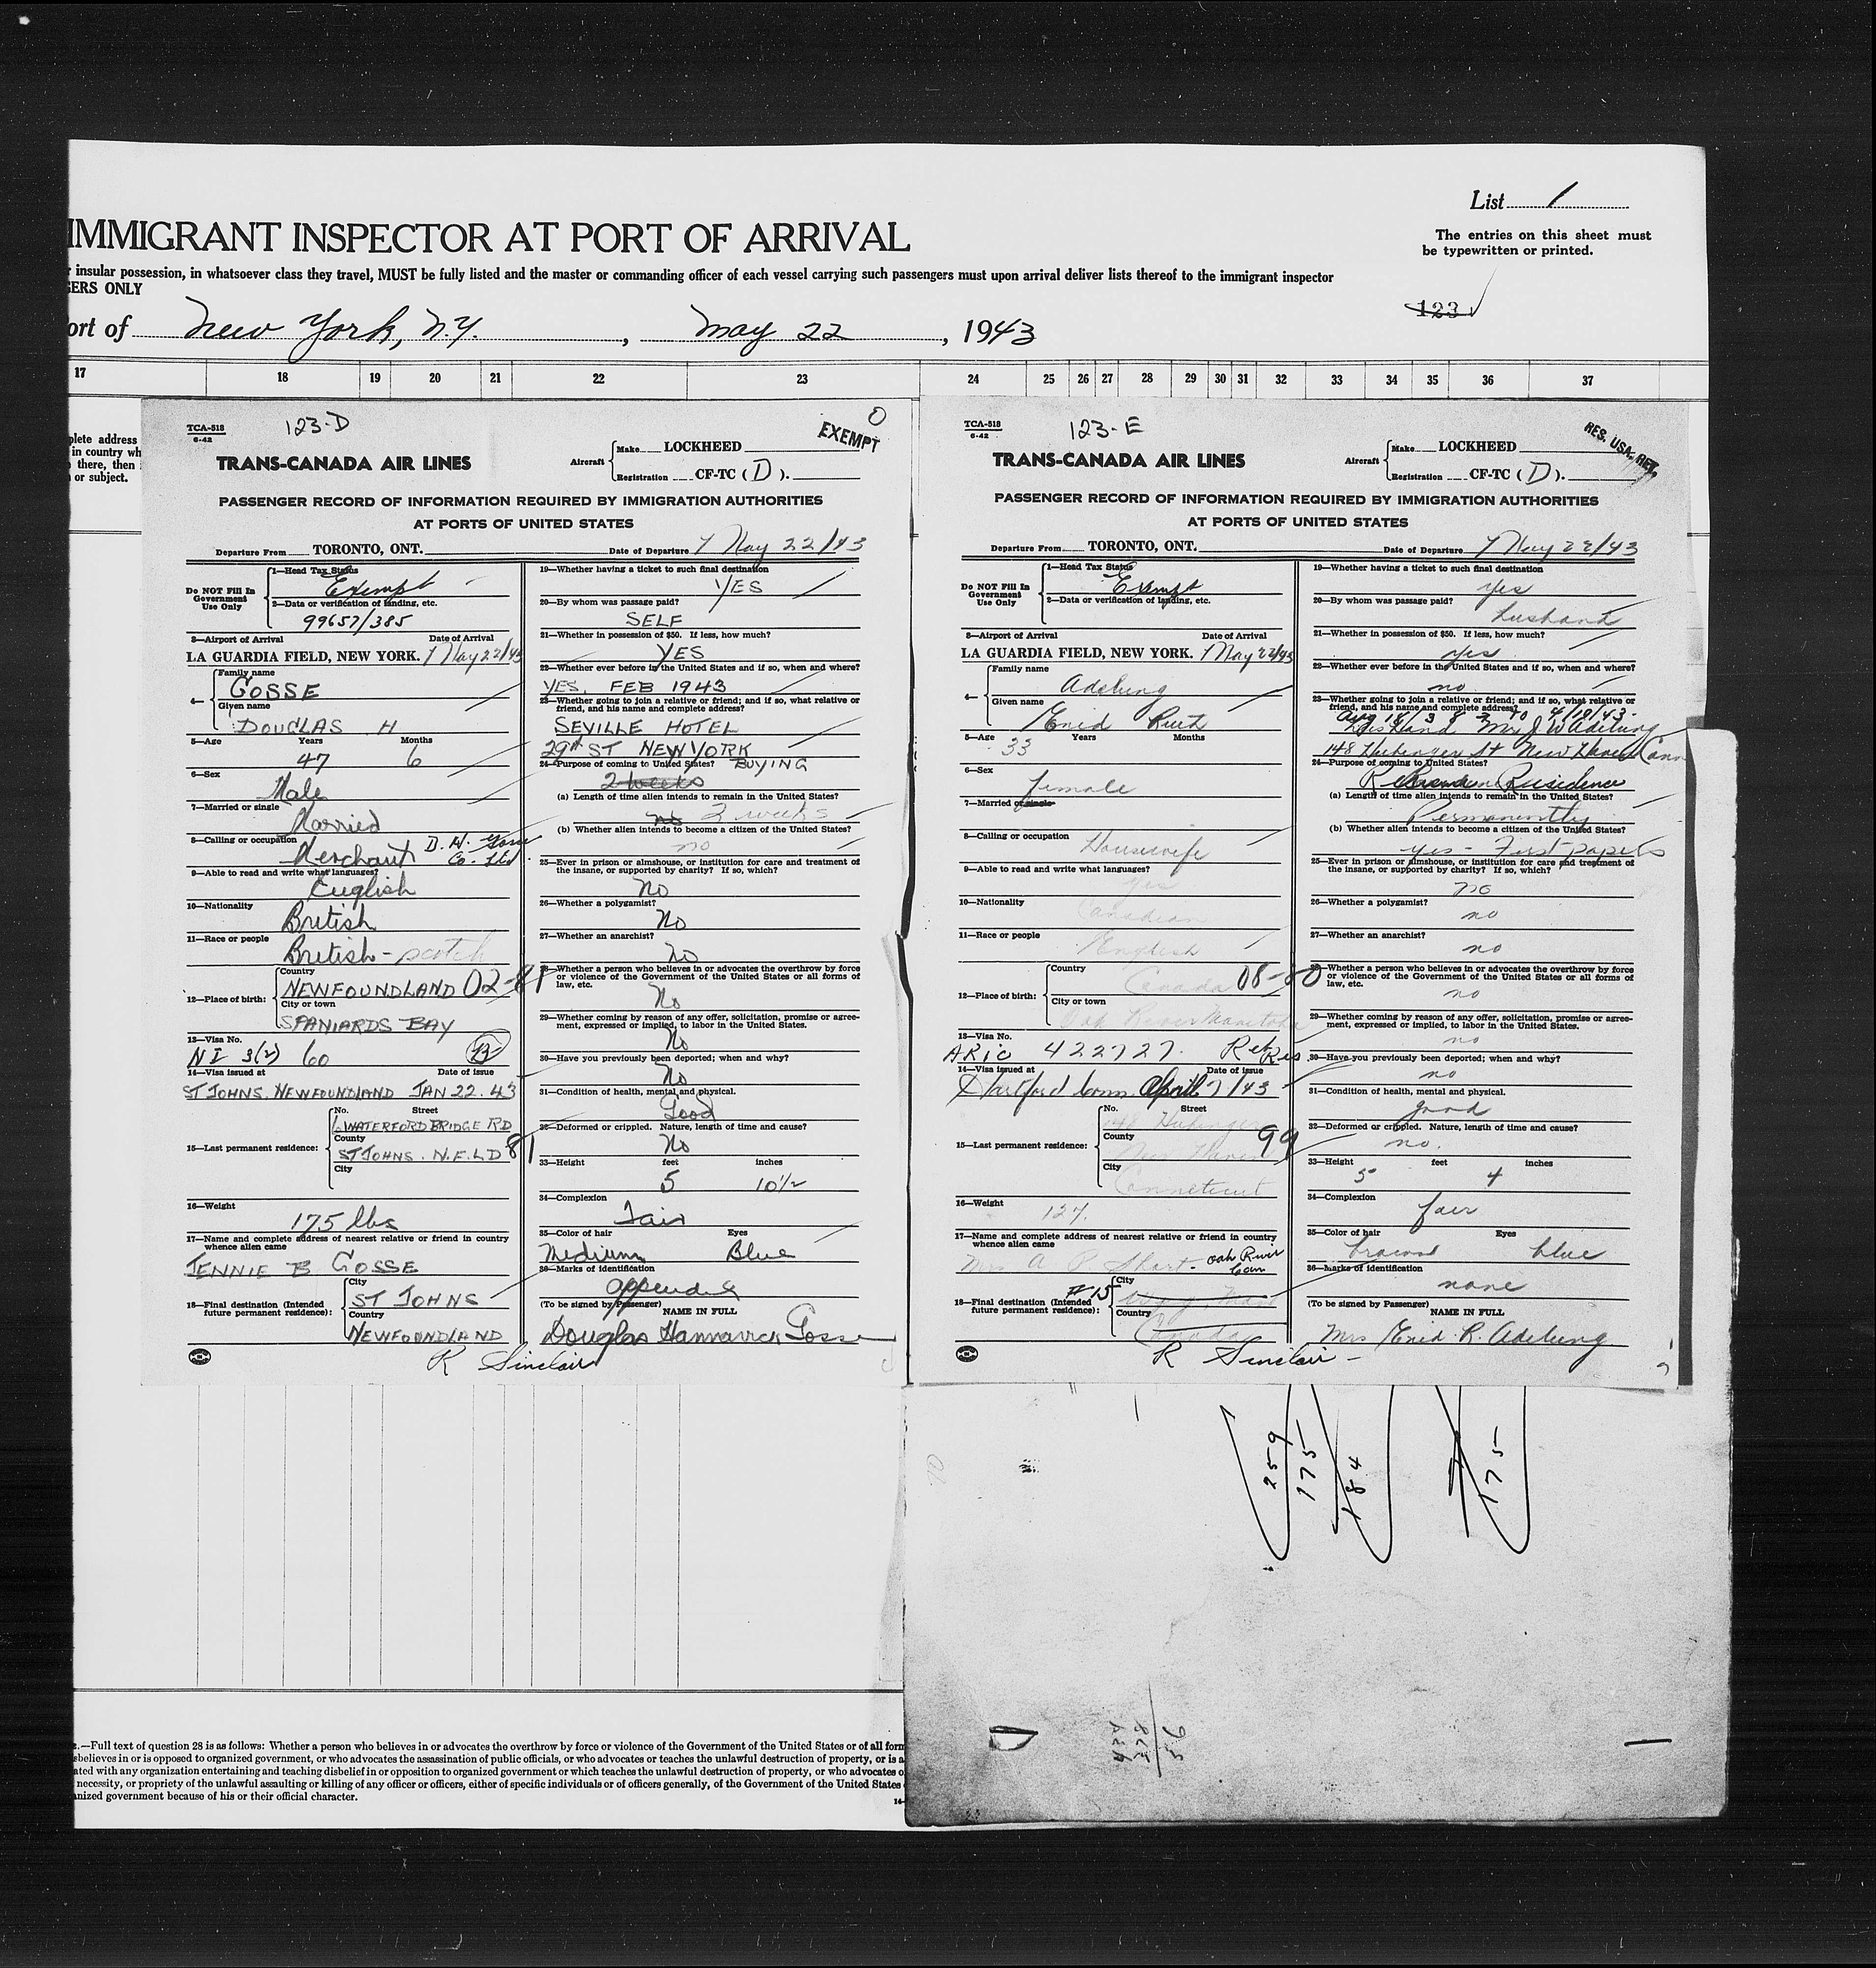 List 1
IMMIGRANT INSPECTOR AT PORT OF ARRIVAL
The entries on this sheet must
be typewritten or printed.
r insular possession, in whatsoever class they travel, MUST be fully listed and the master or commanding officer of each vessel carrying such passengers must upon arrival deliver lists thereof to the immigrant inspector
ERS ONLY
123
ort of New York, N.Y. , May 22 , 1943
17 18 19 20 21 22 23 24 25 26 27 28 29 30 31 32 33 34 35 36 37
plete address
in country wh
there, then
or subject.
TCA-518
6-42
123-D
0
EXEMPT
TRANS-CANADA AIR LINES
Aircraft
Make LOCKHEED
Registration CF-TC ( D ).
PASSENGER RECORD OF INFORMATION REQUIRED BY IMMIGRATION AUTHORITIES
AT PORTS OF UNITED STATES
Departure From TORONTO, ONT. Date of Departure May 22/43
Do NOT Fill In
Government
Use Only
1—Head Tax Status
Exempt
2—Data or verification of landing, etc.
99657/385
3—Airport of Arrival Date of Arrival
LA GUARDIA FIELD, NEW YORK. May 22/43
4—
Family name
GOSSE
Given name
DOUGLAS H
5—Age Years Months
47 6
6—Sex
Male
7—Married or single
Married
8—Calling or occupation
Merchant D. H. Gosse
Co. Ltd.
9—Able to read and write what languages?
English
10—Nationality
British
11—Race or people
British - scotch
12—Place of birth:
Country
NEWFOUNDLAND 02-81
City or town
SPANIARDS BAY
13—Visa No.
NI 3(2) 60
14—Visa issued at Date of issue
ST JOHNS. NEWFOUNDLAND JAN 22. 43
15—Last permanent residence:
No. Street
6 WATERFORD BRIDGE RD
County
ST JOHNS. N.F.L D 81
City
16—Weight
175 lbs
17—Name and complete address of nearest relative or friend in country
whence alien came
JENNIE B GOSSE
18—Final destination (Intended
future permanent residence):
City
ST JOHNS
Country
NEWFOUNDLAND
19—Whether having a ticket to such final destination
YES
20—By whom was passage paid?
SELF
21—Whether in possession of $50. If less, how much?
YES
22—Whether ever before in the United States and if so, when and where?
YES. FEB 1943
23—Whether going to join a relative or friend; and if so, what relative or
friend, and his name and complete address?
SEVILLE HOTEL
29th ST NEW YORK
24—Purpose of coming to United States? BUYING
2 weeks
(a) Length of time alien intends to remain in the United States?
no 2 weeks
(b) Whether alien intends to become a citizen of the United States?
no
25—Ever in prison or almshouse, or institution for care and treatment of
the insane, or supported by charity? If so, which?
No
26—Whether a polygamist?
No
27—Whether an anarchist?
No
28—Whether a person who believes in or advocates the overthrow by force
or violence of the Government of the United States or all forms of
law, etc.
No
29—Whether coming by reason of any offer, solicitation, promise or agree-
ment, expressed or implied, to labor in the United States.
No
30—Have you previously been deported; when and why?
No
31—Condition of health, mental and physical.
Good
32—Deformed or crippled. Nature, length of time and cause?
No
33—Height feet inches
5 10½
34—Complexion
Fair
35—Color of hair Eyes
Medium Blue
36—Marks of identification
appendix
(To be signed by Passenger) NAME IN FULL
Douglas Gosse
R Sinclair
TCA-518
6-42
123-E
RES. USA. RET.
TRANS-CANADA AIR LINES
Aircraft
Make LOCKHEED
Registration CF-TC ( D ).
PASSENGER RECORD OF INFORMATION REQUIRED BY IMMIGRATION AUTHORITIES
AT PORTS OF UNITED STATES
Departure From TORONTO, ONT. Date of Departure May 22/43
Do NOT Fill In
Government
Use Only
1—Head Tax Status
Exempt
2—Data or verification of landing, etc.
3—Airport of Arrival Date of Arrival
LA GUARDIA FIELD, NEW YORK. May 22/43
4—
Family name
Adelung
Given name
Enid Ruth
5—Age Years Months
33
6—Sex
female
7—Married or single
8—Calling or occupation
Housewife
9—Able to read and write what languages?
yes
10—Nationality
Canadian
11—Race or people
English
12—Place of birth:
Country
Canada 08-80
City or town
Oak River Manitoba
13—Visa No.
ARIC 422727. Ret Res.
14—Visa issued at Date of issue
Hartford Conn. April 7/43
15—Last permanent residence:
No. Street
148 Hubinger
County
New Haven 99
City
Connecticut
16—Weight
127.
17—Name and complete address of nearest relative or friend in country
whence alien came
Mrs A P Short - Oak River
Can
18—Final destination (Intended
future permanent residence):
#15
City
Country
Canada
19—Whether having a ticket to such final destination
yes
20—By whom was passage paid?
husband
21—Whether in possession of $50. If less, how much?
yes
22—Whether ever before in the United States and if so, when and where?
no
23—Whether going to join a relative or friend; and if so, what relative or
friend, and his name and complete address?
Aug 18/38 to 4/10/43-
Husband Mr J W Adelung
148 Hubinger St New Haven Conn
24—Purpose of coming to United States?
Residence
(a) Length of time alien intends to remain in the United States?
Permanently
(b) Whether alien intends to become a citizen of the United States?
yes - First papers
25—Ever in prison or almshouse, or institution for care and treatment of
the insane, or supported by charity? If so, which?
no
26—Whether a polygamist?
no
27—Whether an anarchist?
no
28—Whether a person who believes in or advocates the overthrow by force
or violence of the Government of the United States or all forms of
law, etc.
no
29—Whether coming by reason of any offer, solicitation, promise or agree-
ment, expressed or implied, to labor in the United States.
no
30—Have you previously been deported; when and why?
no
31—Condition of health, mental and physical.
good
32—Deformed or crippled. Nature, length of time and cause?
no.
33—Height feet inches
5 4
34—Complexion
fair
35—Color of hair Eyes
brown blue
36—Marks of identification
none
(To be signed by Passenger) NAME IN FULL
Mrs Enid R. Adelung
R Sinclair
259
175
184
175
.—Full text of question 28 is as follows: Whether a person who believes in or advocates the overthrow by force or violence of the Government of the United States or of all form
believes in or is opposed to organized government, or who advocates the assassination of public officials, or who advocates or teaches the unlawful destruction of property, or is a
ated with any organization entertaining and teaching disbelief in or opposition to organized government or which teaches the unlawful destruction of property, or who advocates o
necessity, or propriety of the unlawful assaulting or killing of any officer or officers, either of specific individuals or of officers generally, of the Government of the United States
nized government because of his or their official character.